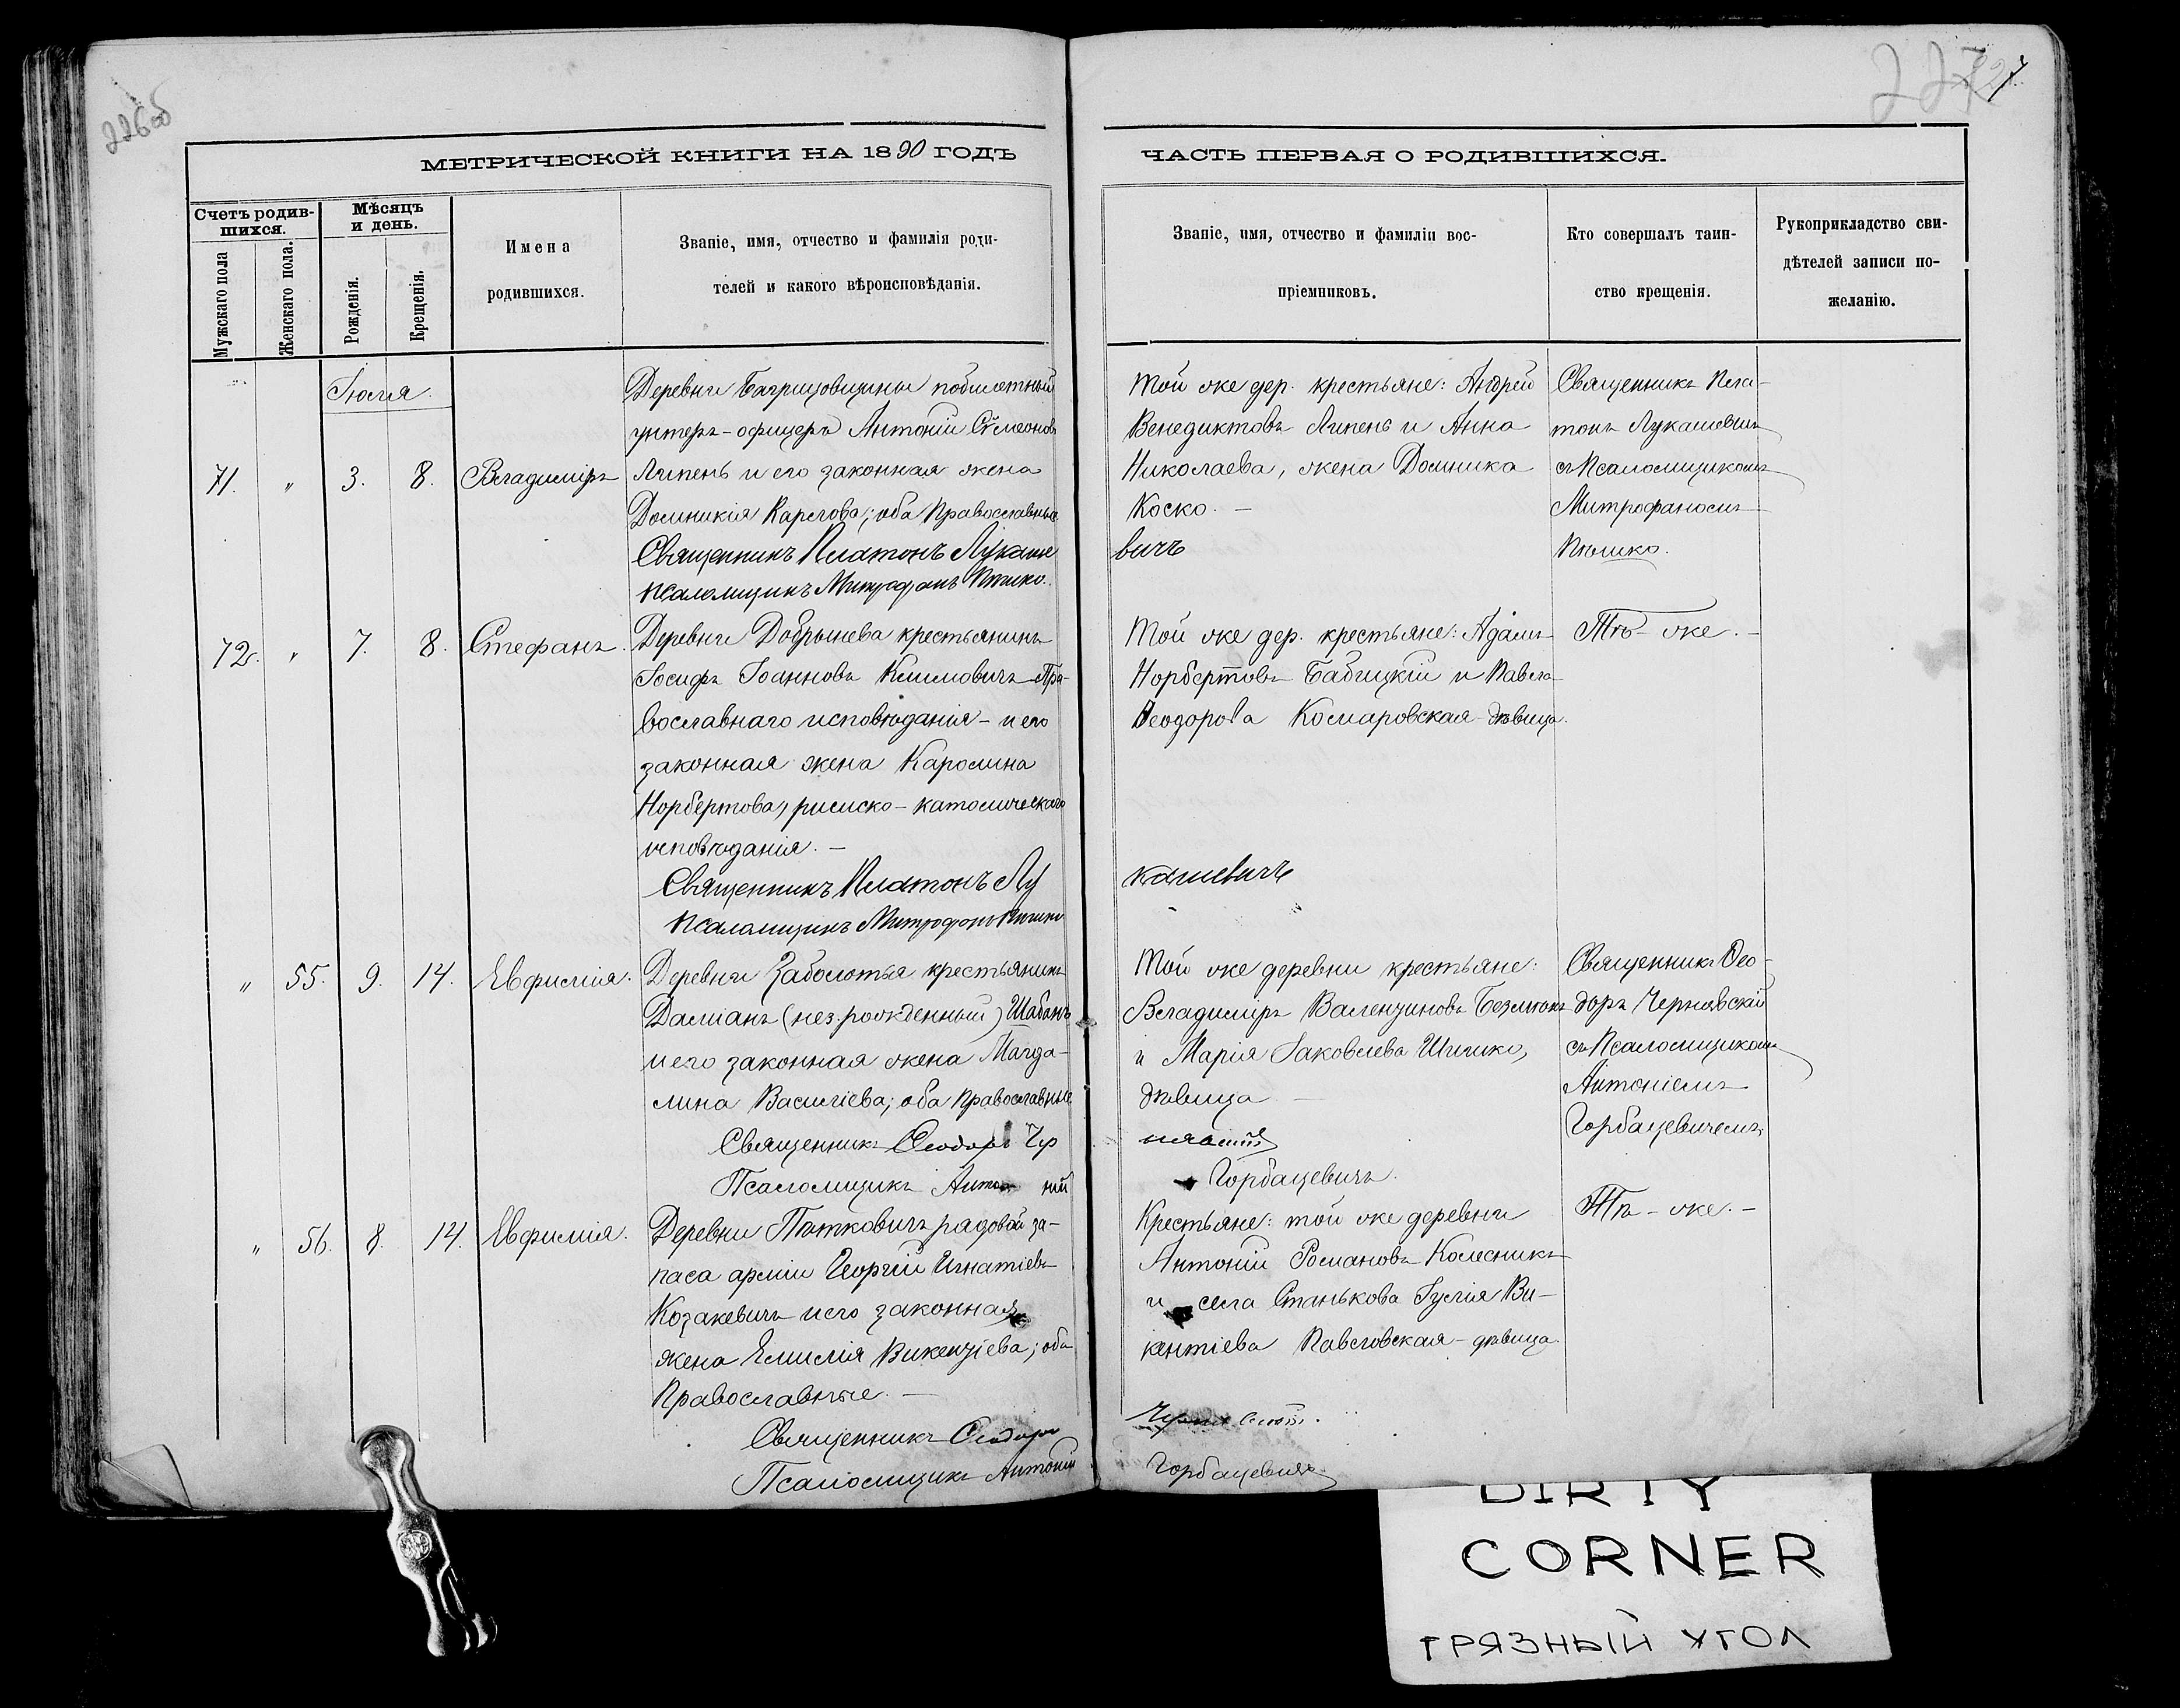 226об
227
МЕТРИЧЕСКОЙ КНИГИ НА 1890 ГОДЪ
ЧАСТЬ ПЕРВАЯ О РОДИВШИХСЯ.
Счетъ родив-
шихся.
Мужскаго пола
Женскаго пола.
Мѣсяцъ
и день.
Рожденія.
Крещенія.
Имена
родившихся.
Званіе, имя, отчество и фамилія роди-
телей и какого вѣроисповѣданія.
Званіе, имя, отчество и фамиліи вос-
пріемниковъ.
Кто совершалъ таин-
ство крещенія.
Рукоприкладство сви-
дѣтелей записи по-
желанію.
Іюля.
71. " 3. 8. Владиміръ
Деревни Багрицовщины побилетный
унтеръ-офицеръ Антоній Сѵмеоновъ
Липень и его законная жена
Домникія Карлова; оба Православные
Священникъ Платонъ Лукаше
псаломщикъ Митрофанъ Пюшко.
Той же дер. крестьяне: Андрей
Венедиктовъ Липень и Анна
Николаева, жена Доминика
Коско. —
вичъ
Священникъ Пла-
тонъ Лукашевичъ
съ Псаломщикомъ
Митрофаномъ
Пюшко.
72. " 7. 8. Стефанъ.
Деревни Добрынева крестьянинъ
Іосифъ Іоанновъ Климовичъ Пра-
вославнаго исповѣданія - и его
законная жена Каролина
Норбертова, римско-католическаго
исповѣданія. —
Священникъ Платонъ Лу
псаломщикъ Митрофанъ Пюшко
Той же дер. крестьяне: Адамъ
Норбертовъ Бабицкій и Павла
Ѳеодорова Комаровская дѣвица.
кашевичъ
Тѣ-же. -
" 55. 9. 14. Евфимія.
Деревни Заболотья крестьянинъ
Даміанъ (нез. рожденный) Шабанъ
и его законная жена Магда-
лина Василіева; оба Православные
Священникъ Ѳеодоръ Чер
Псаломщикъ Антоній
Той же деревни крестьяне:
Владиміръ Валенциновъ
и Марія Іаковлева Шишко,
дѣвица —
Горбацевичъ.
Священникъ Ѳео-
доръ Чернявскій
съ Псаломщикомъ
Антоніемъ
Горбацевичемъ
" 56. 8. 14. Евфимія.
Деревни Петковичъ рядовой за-
паса арміи Георгій Игнатіевъ
Козакевичъ и его законная
жена Емилія Викентіева; оба
Православные. —
Священникъ Ѳеодоръ
Псаломщикъ Антоній
Крестьяне: той же деревни
Антоній Романовъ Колесникъ
и села Станькова Іулія Ви-
кентіева Павловская - дѣвица.
Горбацевичъ
Тѣ-же. -
DIRTY
CORNER
ГРЯЗНЫЙ УГОЛ